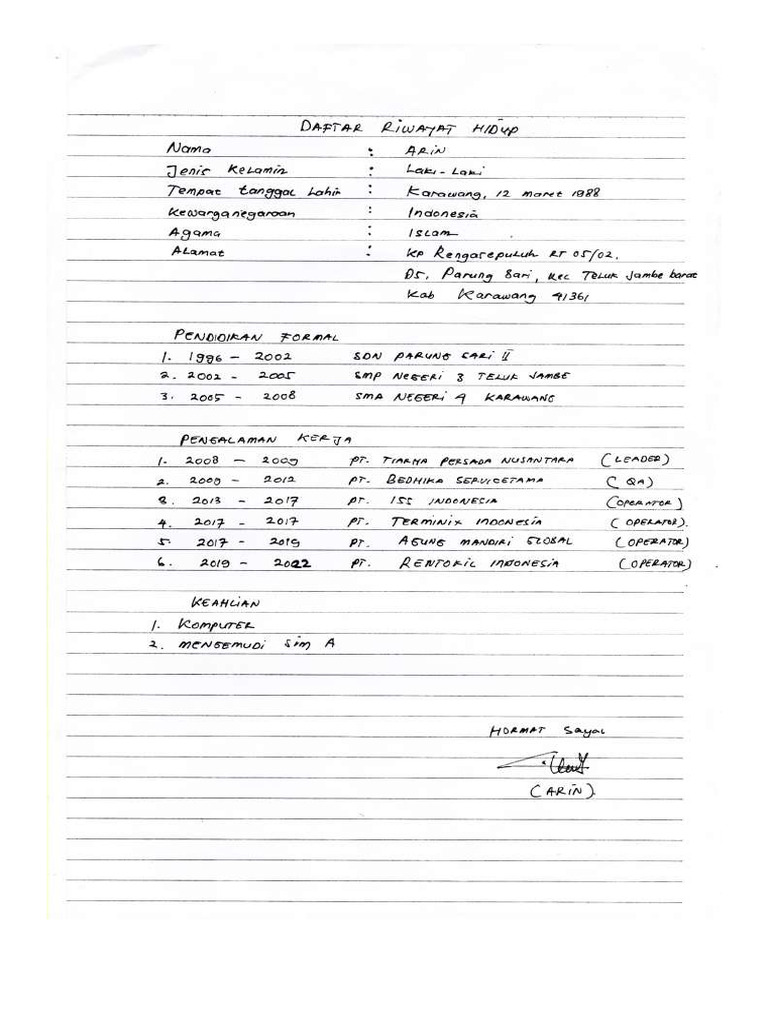 DAFTAR RIWAYAT HIDUP
Nama : ARIN
Jenis Kelamin : Laki-Laki
Tempat tanggal Lahir : Karawang, 12 maret 1988
Kewarganegaraan : Indonesia
Agama : Islam
Alamat : KP Rengasepuluh RT 05/02.
Ds. Parung Sari, Kec Teluk Jambe barat
Kab Karawang 41361
PENDIDIKAN FORMAL
1. 1996 - 2002 SDN PARUNG SARI II
2. 2002 - 2005 SMP NEGERI 3 TELUK JAMBE
3. 2005 - 2008 SMA NEGERI 4 KARAWANG
PENGALAMAN KERJA
1. 2008 - 2009 PT. TIARMA PERSADA NUSANTARA (LEADER)
2. 2009 - 2012 PT. BEDHIKA SERVICETAMA (QA)
3. 2013 - 2017 PT. ISS INDONESIA (OPERATOR)
4. 2017 - 2017 PT. TERMINIX INDONESIA (OPERATOR).
5. 2017 - 2019 PT. AGUNG MANDIRI GLOBAL (OPERATOR)
6. 2019 - 2022 PT. RENTOKIL INDONESIA (OPERATOR)
KEAHLIAN
1. KOMPUTER
2. MENGEMUDI SIM A
HORMAT Saya
(ARIN)